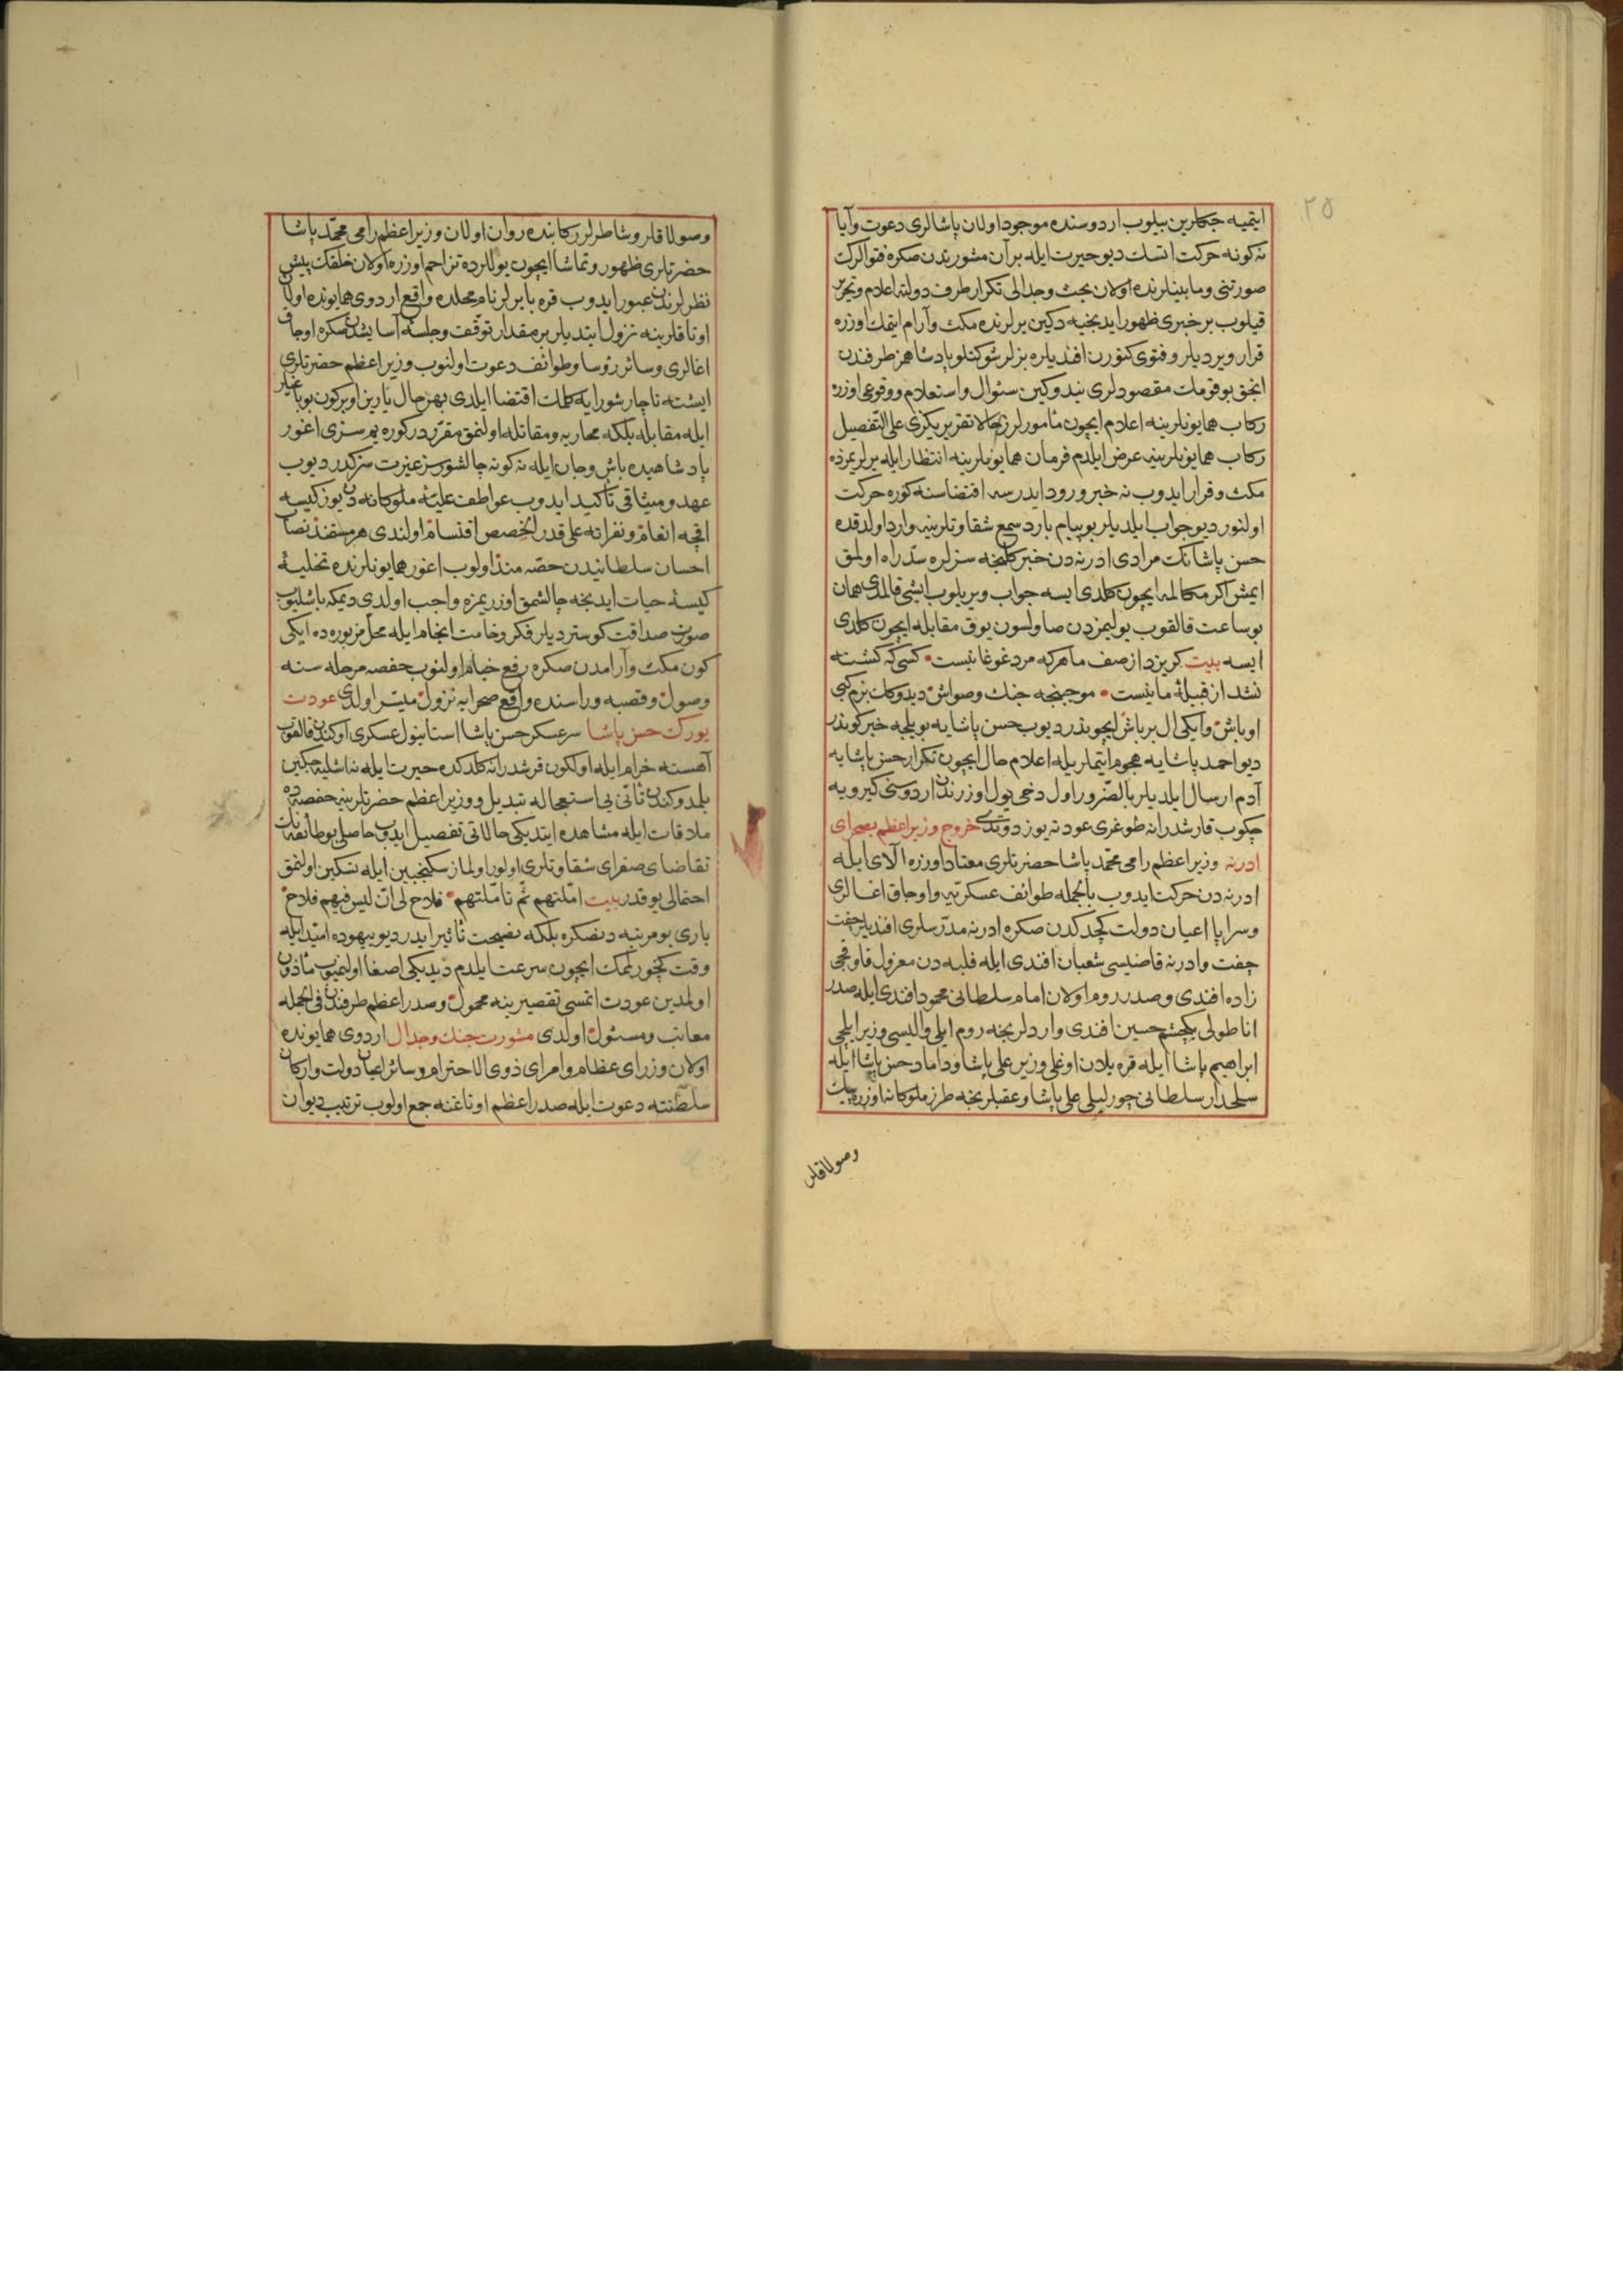 ٢٥
ایتمیه جکلرین بیلوب اردوسنده موجود اولان پاشالری دعوت وآیا
نه کونه حرکت ایتسك دیو حیرت ایله بر آن مشورتدن صکره فتوالرك
صورتنی ومابینلرنده اولان بحث وجدالی تکرار طرف دولته اعلام وتحریر
قیلوب بر خبری ظهور ایدنجیه دکین یرلرنده مکث وآرام ایتمك اوزره
قرار ویردیلر وفتوی کتورن افندیلره بزلر شوکتلو پادشاهمز طرفندن
انجق بو قومك مقصودلری نیدوکین سئوال واستعلام ووقوعی اوزره
رکاب همایونلرینه اعلام ایچون مأمورلرز حالا تقریریکزی علی التفصیل
رکاب همایونلرینه عرض ایلدم فرمان همایونلرینه انتظار ایله یرلریمزده
مکث وقرار ایدوب نه خبر ورود ایدرسه اقتضاسنه کوره حرکت
اولنور دیو جواب ایلدیلر بو پیام بارد سمع شقاوتلرینه وارد اولدقده
حسن پاشانك مرادی ادرنه دن خبر کلنجه سزلره سدّ راه اولمق
ایمش اکر مکالمه ایچون کلدی ایسه جواب ویریلوب ایشی قالمدی همان
بو ساعت قالقوب یولیمزدن صاولسون یوق مقابله ایچون کلدی
ایسه بیت کریزد از صف ما هرکه مرد غوغا نیست • کسی که کشته
نشد از قبیلۀ ما نیست • موجبنجه جنك وصواش دیدوکك بزم کبی
اوباش وایکی ال بر باش ایچوندر دیوب حسن پاشایه بویلجه خبر کوندر
دیو احمد پاشایه هجوم ایتملریله اعلام حال ایچون تکرار حسن پاشایه
آدم ارسال ایلدیلر بالضرور اول دخی یول اوزرندن اردوسنی کیرویه
چکوب قارشدرانه طوغری عودته یوز دوتدی خروج وزیر اعظم بصحرای
ادرنه وزیر اعظم رامی محمّد پاشا حضرتلری معتاد اوزره آلای ایله
ادرنه دن حرکت ایدوب بالجمله طوائف عسکریّه واوجاق اغالری
وسراپا اعیان دولت کچدکدن صکره ادرنه مدرّسلری افندیلر جفت
جفت وادرنه قاضیسی شعبان افندی ایله فلبه دن معزول قاوقجی
زاده افندی وصدر روم اولان امام سلطانی محمود افندی ایله صدر
اناطولی یکچشم حسین افندی واردلرنجه روم ایلی والیسی وزیر ایلچی
ابراهیم پاشا ایله قره بلان اوغلی وزیر علی پاشا وداماد حسن پاشا ایله
سلحدار سلطانی چورلیلی علی پاشا وعقبلرنجه طرز ملوکانه اوزره پیك
وصولاقلر
وصولاقلر وشاطرلر رکابنده روان اولان وزیر اعظم رامی محمّد پاشا
حضرتلری ظهور وتماشا ایچون یوللرده تزاحم اوزره اولان خلقك پیش
نظرلرندن عبور ایدوب قره بایرلر نام محلده واقع اردوی همایونده اولان
اوتاقلرینه نزول ایتدیلر بر مقدار توقّف وجلسۀ آسایشدن صکره اوجاق
اغالری وسائر رؤسا وطوائف دعوت اولنوب وزیر اعظم حضرتلری
ایشته ناچار شورایه کلمك اقتضا ایلدی بهر حال یارین اوبر کون بو باغیلر
ایله مقابله بلکه محاربه ومقاتله اولنمق مقرّردر کوره یم سزی اغور
پادشاهیده باش وجان ایله نه کونه چالشورسز غیرت سزکدر دیوب
عهد ومیثاقی تأکید ایدوب عواطف علیّۀ ملوکانه دن یوز کیسه
اقچه انعام ونفراته علی قدر الحصص اقتسام اولندی هر صنفند نصاب
احسان سلطانیدن حصّه مند اولوب اغور همایونلرنده تخلیۀ
کیسۀ حیات ایدنجه چالشمق اوزریمزه واجب اولدی دیمکه باشلیوب
صورت صداقت کوستردیلر فکر وخامت انجام ایله محلّ مزبوره ده ایکی
کون مکث وآرامدن صکره رفع خیام اولنوب حفصه مرحله سنه
وصول وقصبه وراسنده واقع صحرایه نزول میسّر اولدی عودت
یورك حسن پاشا سرعسکر حسن پاشا استانبول عسکری اوکندن قالقوب
آهسته خرام ایله اولکون قرشدرانه کلدکده حیرت ایله نه اشلیه جکین
بلمدوکندن تأنّی یی استعجاله تبدیل ووزیر اعظم حضرتلرینه حفصه ده
ملاقات ایله مشاهده ایتدیکی حالاتی تفصیل ایدوب حاصلی بو طائفه نك
تقاضای صفرای شقاوتلری اولور اولماز سکنجبین ایله تسکین اولنمق
احتمالی یوقدر بیت امّلتهم ثم تأمّلتهم • فلاح لی ان لیس فیهم فلاح
باری بو مرتبه دنصکره بلکه نصیحت تأثیر ایدر دیو بیهوده امّید ایله
وقت کچورلمك ایچون سرعت ایلدم دیدیکی اصغا اولنمیوب مأذون
اولمدین عودت اتمسی تقصیرینه محمول وصدر اعظم طرفندن فی الجمله
معاتب ومسئول اولدی مشورت جنك وجدال اردوی همایونده
اولان وزرای عظام وامرای ذوی الاحترام وسائر اعیان دولت وارکان
سلطنته دعوت ایله صدر اعظم اوتاغنه جمع اولوب ترتیب دیوان